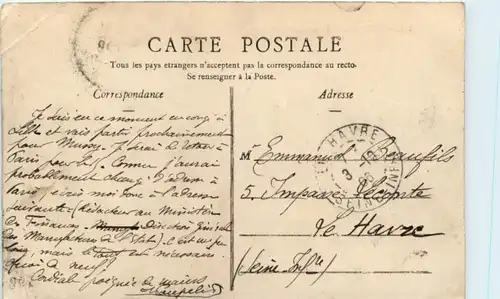 CARTE POSTALE
Tous les pays etrangers n'acceptent pas la correspondance au recto-
Se renseigner à la Poste.
Correspondance
Adresse
Je suis en ce moment en congé à
et vais partir prochainement
pour Je serai de retour à
Paris pour le Comme j'aurai
probablement changé d'adresse à
Paris, écris moi donc à l'adresse
suivante (Rédacteur au Ministère
des Finances Direction générale
des Manufactures de l'Etat). C'est un peu
long, mais le tout est nécessaire.
Quoi de neuf?
Cordiale poignée de mains
Mr Emmanuel Beaufils
5, Impasse Lecomte
Le Havre
(Seine Infre)
HAVRE